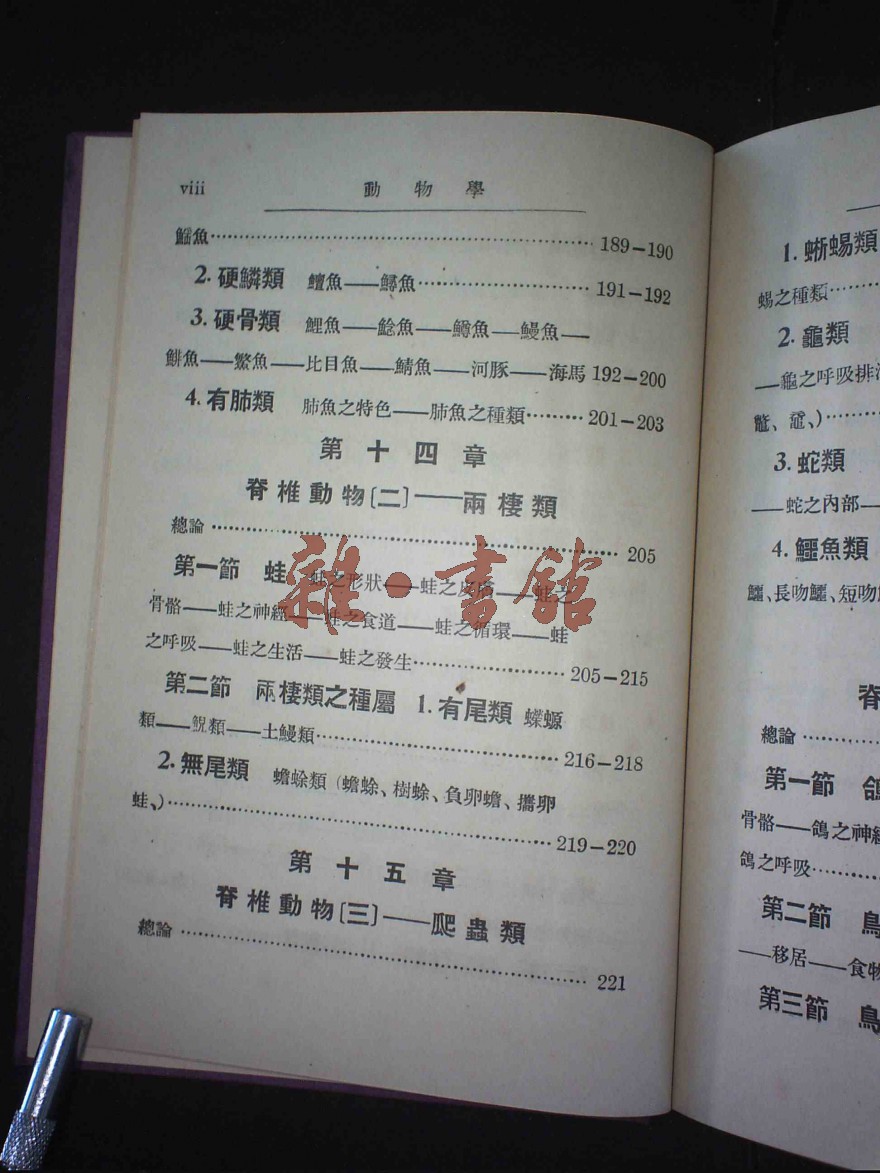 viii 動物學
鰩魚 189-190
2. 硬鱗類 鱣魚——鱘魚 191-192
3. 硬骨類 鯉魚——鯰魚——鱒魚——鰻魚——
鯡魚——鱉魚——比目魚——鯖魚——河豚——海馬 192-200
4. 有肺類 肺魚之特色——肺魚之種類 201-203
第十四章
脊椎動物〔二〕——兩棲類
總論 205
第一節 蛙 蛙之形狀——蛙之皮膚——蛙之
骨骼——蛙之神經——蛙之食道——蛙之循環——蛙
之呼吸——蛙之生活——蛙之發生 205-215
第二節 兩棲類之種屬 1. 有尾類 蠑螈
類——鯢類——土鰻類 216-218
2. 無尾類 蟾蜍類（蟾蜍、樹蜍、負卵蟾、攜卵
蛙、） 219-220
第十五章
脊椎動物〔三〕——爬蟲類
總論 221
雜·書館
1. 蜥蜴類
蜴之種類
2. 龜類
——龜之呼吸排
鼈、黿、）
3. 蛇類
——蛇之內部
4. 鱷魚類
鱷、長吻鱷、短吻
脊
總論
第一節 鴿
骨骼——鴿之神經
鴿之呼吸
第二節 鳥
——移居——食物
第三節 鳥